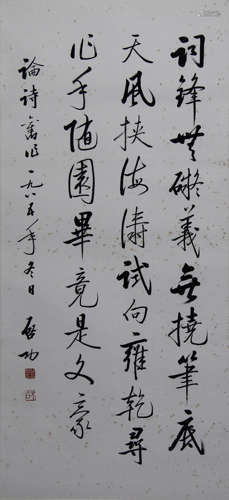 词锋无碍义无挠笔底
天风挟海涛试向雍乾寻
作手随园毕竟是文豪
論诗舊作一九八五年冬日 啟功